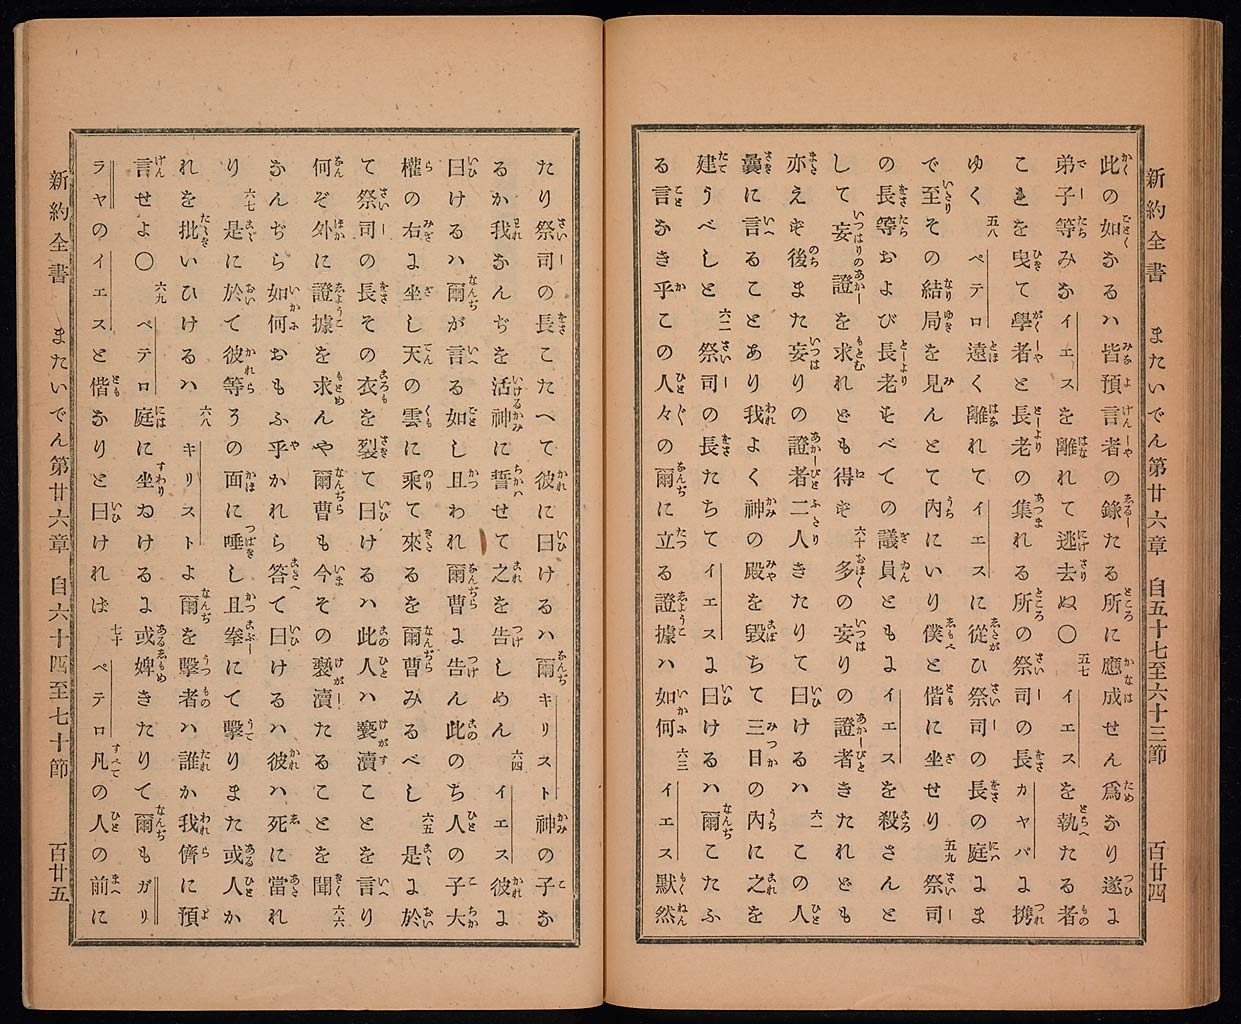 新約全書 またいでん第廿六章 自五十七至六十三節 百廿四
此の如なるハ皆預言者の錄たる所に應成せん爲なり遂よ
弟子等みなイエスを離れて逃去ぬ〇 五七 イエスを執たる者
これを曳て學者と長老の集れる所の祭司の長カヤパよ携
ゆく 五八 ペテロ遠く離れてイエスに從ひ祭司の長の庭よま
で至その結局を見んとて內にいり僕と偕に坐せり 五九 祭司
の長等および長老すべての議員ともよイエスを殺さんと
して妄證を求れども得ず 六十 多の妄りの證者きたれども
亦えず後また妄りの證者二人きたりて曰けるハ 六一 この人
曩に言ることあり我よく神の殿を毀ちて三日の內に之を
建うべしと 六二 祭司の長たちてイエスよ曰けるハ爾こたふ
る言なき乎この人々の爾に立る證據ハ如何 六三 イエス默然
たり祭司の長こたへて彼に曰けるハ爾キリスト神の子な
るか我なんぢを活神に誓せて之を告しめん 六四 イエス彼よ
曰けるハ爾が言る如し且われ爾曹よ告ん此のち人の子大
權の右よ坐し天の雲に乘て來るを爾曹みるべし 六五 是よ於
て祭司の長その衣を裂て曰けるハ此人ハ褻瀆ことを言り
何ぞ外に證據を求んや爾曹も今その褻瀆たることを聞 六六
なんぢら如何おもふ乎かれら答て曰けるハ彼ハ死に當れ
り 六七 是に於て彼等ろの面に唾し且拳にて擊りまた或人か
れを批いひけるハ 六八 キリストよ爾を擊者ハ誰か我儕に預
言せよ〇 六九 ペテロ庭に坐ゐけるよ或婢きたりて爾もガリ
ラヤのイエスと偕なりと曰ければ 七十 ペテロ凡の人の前に
新約全書 またいでん第廿六章 自六十四至七十節 百廿五